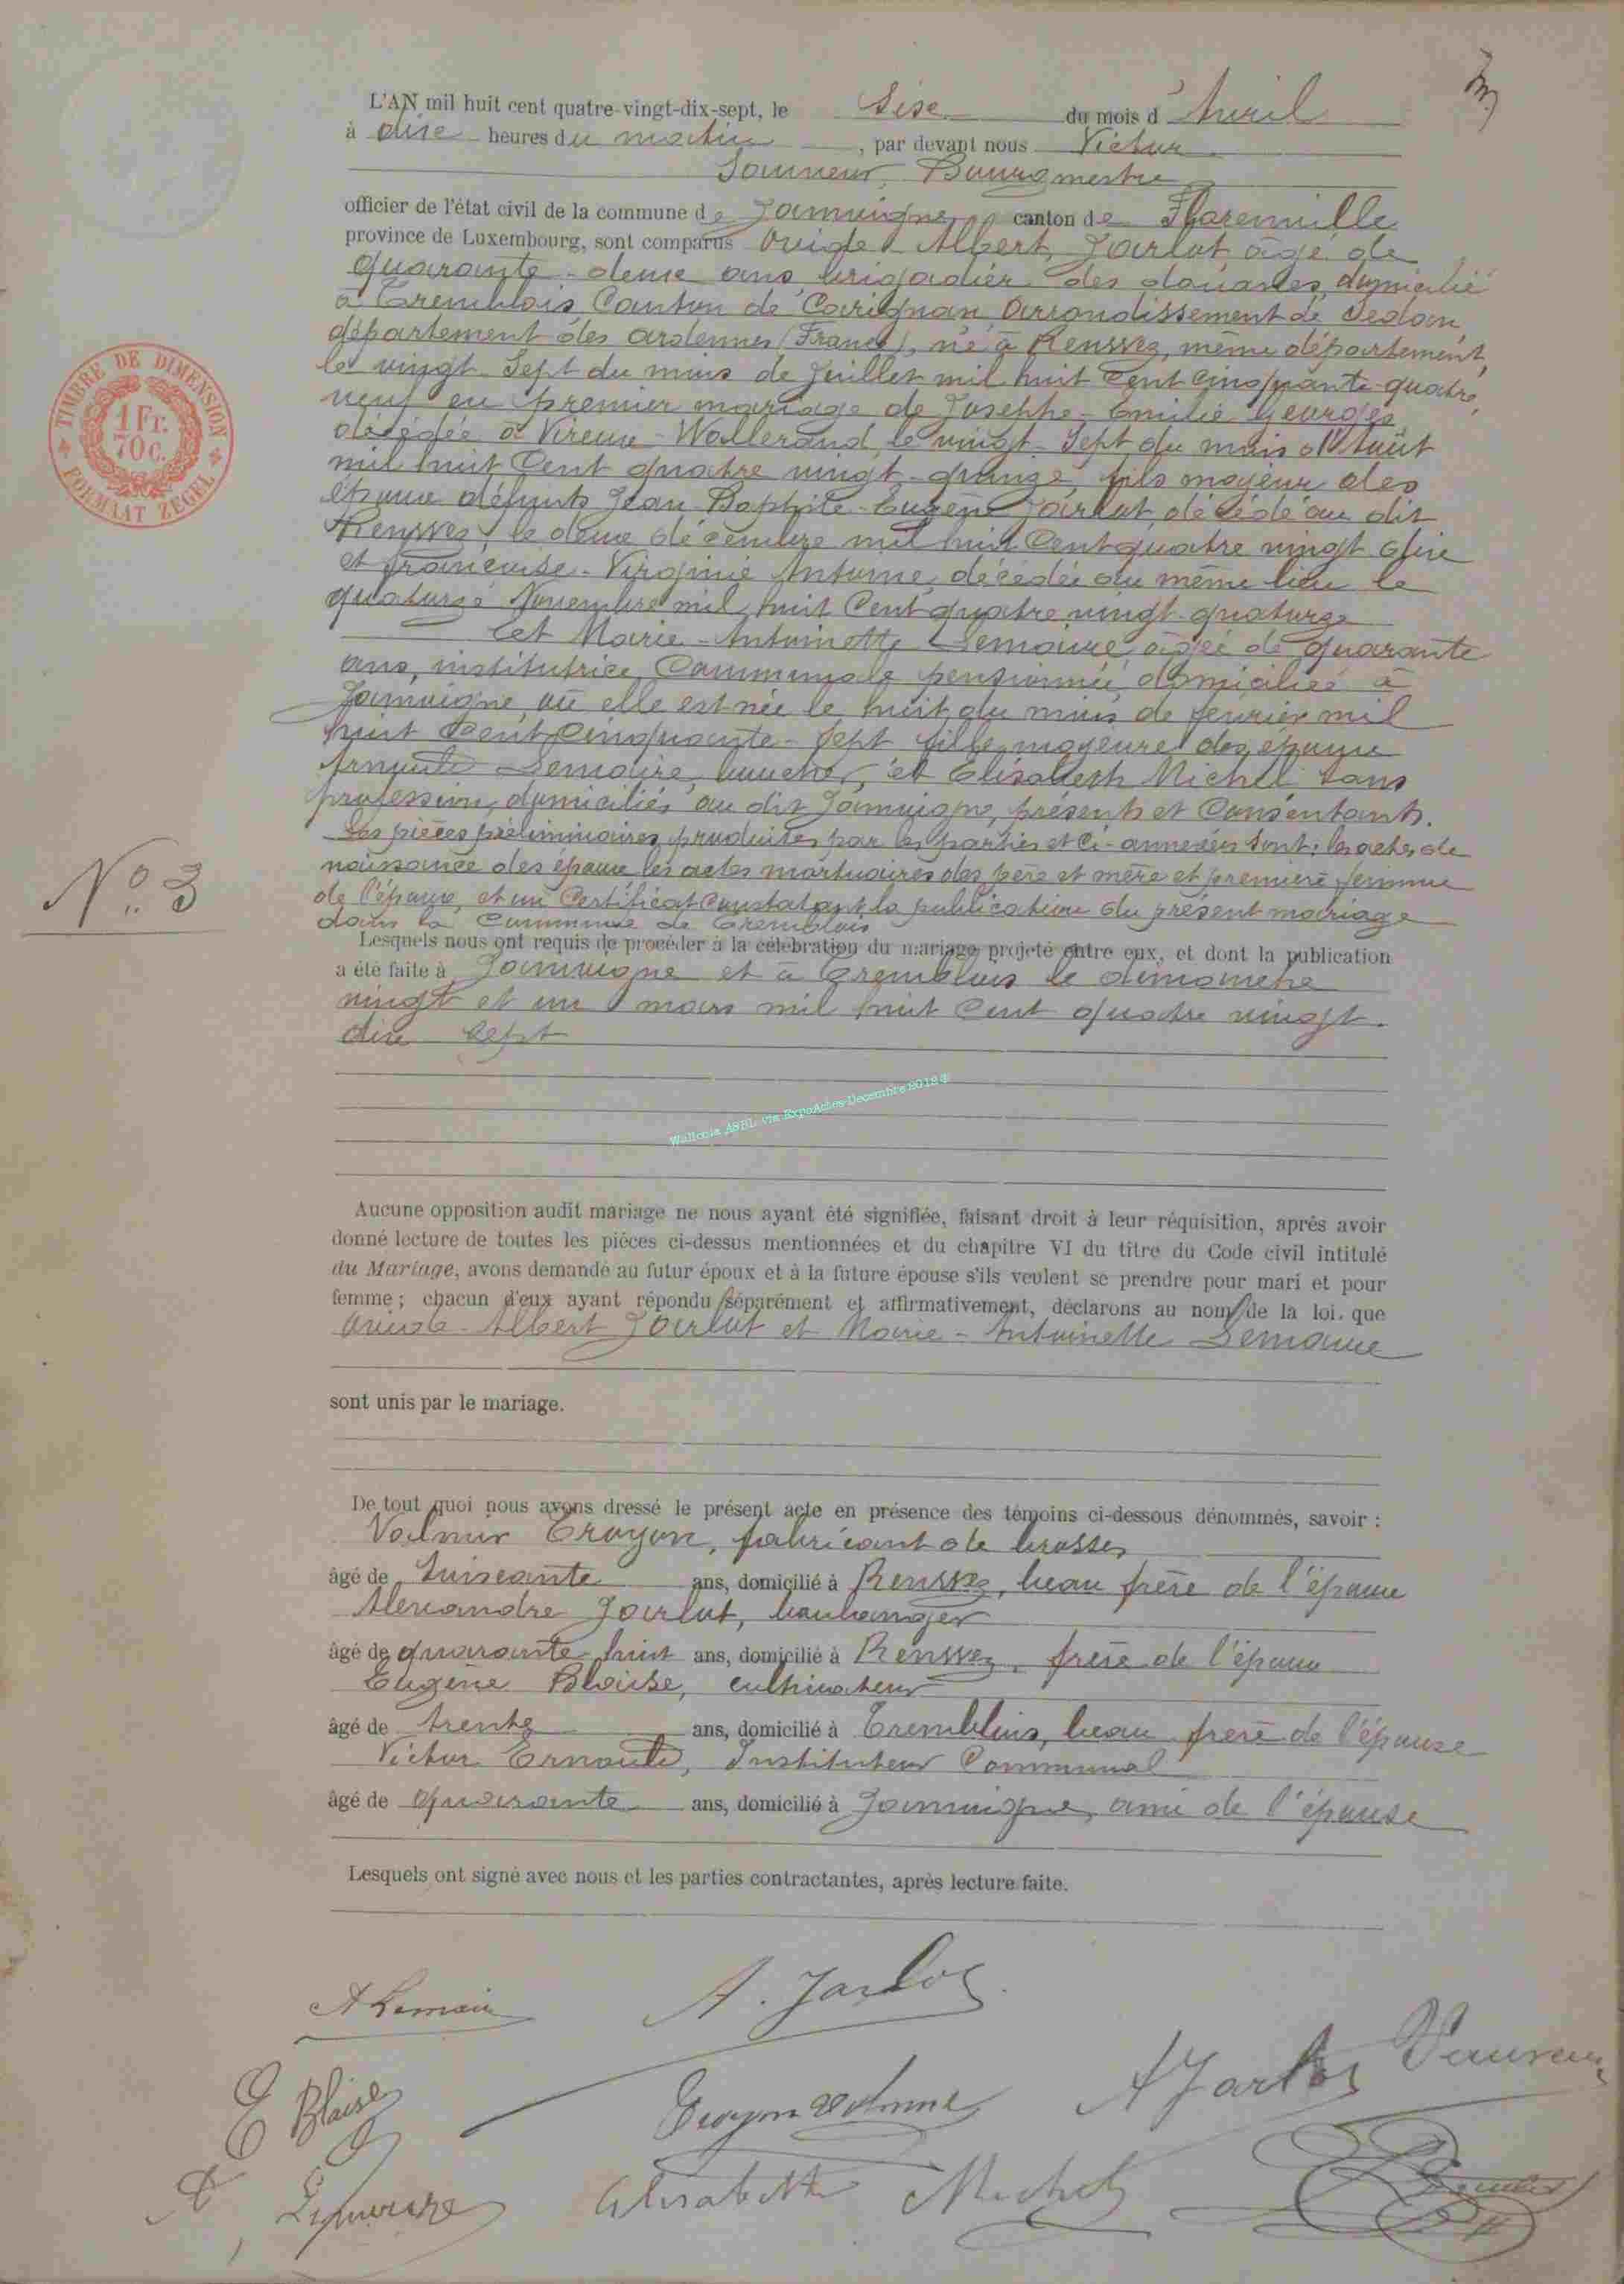 L'AN mil huit cent quatre-vingt-dix-sept, le Sise du mois d'Avril
à dise heures du matin, par devant nous Victur
Bourgmestre
officier de l'état civil de la commune de Jamoigne canton de Florenville
province de Luxembourg, sont comparus Ovide-Albert Jarlot âgé de
quarante-deux ans, brigadier des douanes, domicilié
à Tremblois, Canton de Carignan, Arrondissement de Sedan
département des ardennes (France), né à Renwez, même département,
le vingt-Sept du mois de Juillet mil huit Cent Cinquante-quatre,
veuf en premier mariage de Josephe-Emilie Georges
décédée à Vireux-Wallerand, le vingt-Sept du mois d'Août
mil huit Cent quatre vingt-quinze, fils majeur des
époux défunts Jean Baptiste-Eugène Jarlot, décédé au dit
Renwez, le deux décembre mil huit Cent quatre vingt dix
et françoise-Virginie Antoine, décédée au même lieu le
quatorze Novembre mil huit Cent quatre vingt-quatorze
Et Marie-Antoinette Lemaire, âgée de quarante
ans, institutrice Communale pensionnée, domiciliée à
Jamoigne, où elle est née le huit du mois de février mil
huit Cent Cinquante-Sept fille majeure des époux
Arnould Lemaire, boucher, et Elisabeth Michel sans
profession, domiciliés au dit Jamoigne, présents et Consentants.
Les pièces préliminaires produites par les parties et Ci-annexées Sont: les actes de
naissance des époux les actes mortuaires des père et mère et première femme
de l'époux, et un Certificat Constatant la publication du présent mariage
dans la Commune de Tremblois
Lesquels nous ont requis de procéder à la célébration du mariage projeté entre eux, et dont la publication
a été faite à Jamoigne et à Tremblois le dimanche
vingt et un mars mil huit Cent quatre vingt-
dix-sept
Wallonia ASBL via ExpoActes-Decembre 2012
Aucune opposition audit mariage ne nous ayant été signifiée, faisant droit à leur réquisition, après avoir
donné lecture de toutes les pièces ci-dessus mentionnées et du chapitre VI du titre du Code civil intitulé
du Mariage, avons demandé au futur époux et à la future épouse s'ils veulent se prendre pour mari et pour
femme; chacun d'eux ayant répondu séparément et affirmativement, déclarons au nom de la loi, que
Ovide-Albert Jarlot et Marie-Antoinette Lemaire
sont unis par le mariage.
De tout quoi nous avons dressé le présent acte en présence des témoins ci-dessous dénommés, savoir :
Troyon, fabricant de brosses
âgé de Soixante ans, domicilié à Renwez, beau frère de l'époux
Alexandre Jarlot, boulanger
âgé de quarante-huit ans, domicilié à Renwez, frère de l'époux
Eugène Blaise, cultivateur
âgé de trente ans, domicilié à Tremblois, beau frère de l'épouse
Victor Ernould, Instituteur Communal
âgé de quarante ans, domicilié à Jamoigne, ami de l'épouse
Lesquels ont signé avec nous et les parties contractantes, après lecture faite.
TIMBRE DE DIMENSION
1 Fr.
70 C.
FORMAAT ZEGEL
N° 3
A Lemaire
A. Jarlot
E Blaise
Troyon
A Jarlot
A Lemaire
Elisabeth Michel